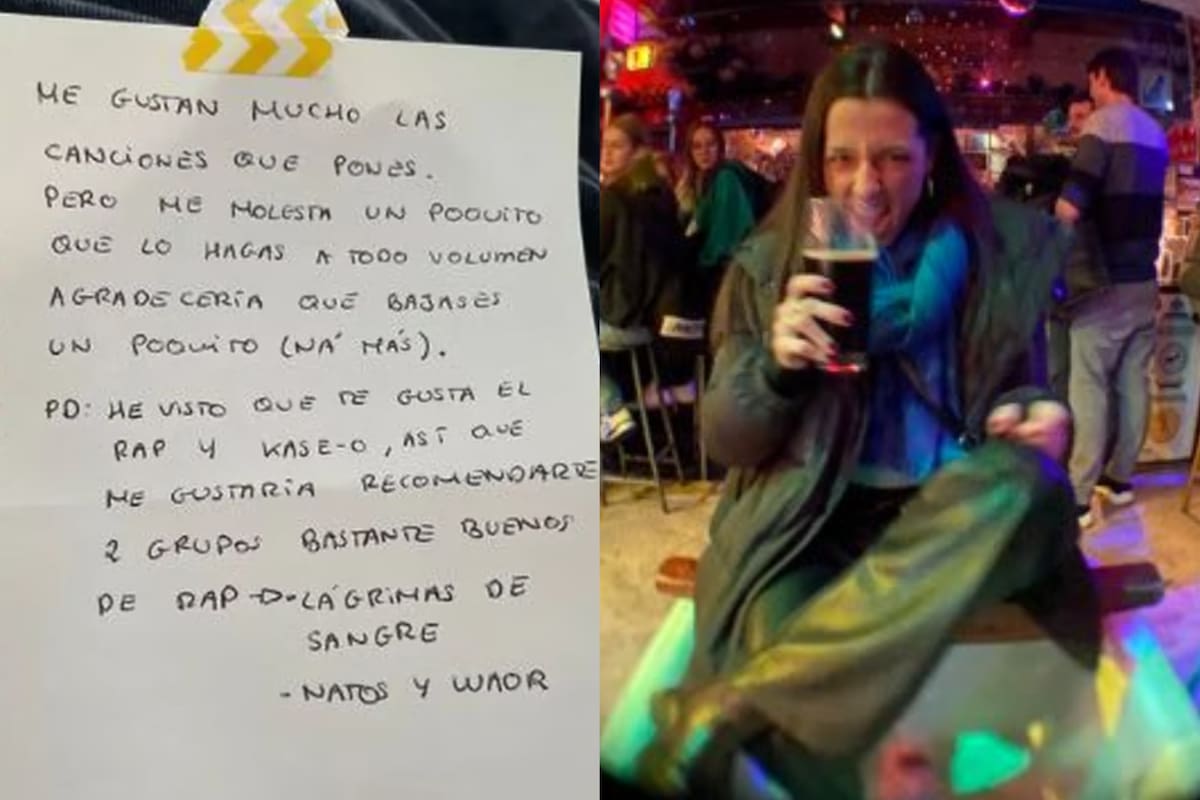 ME GUSTAN MUCHO LAS
CANCIONES QUE PONES.
PERO ME MOLESTA UN POQUITO
QUE LO HAGAS A TODO VOLUMEN
AGRADECERÍA QUE BAJASES
UN POQUITO (NÁ MÁS).
PD: HE VISTO QUE TE GUSTA EL
RAP Y KASE-O, ASÍ QUE
ME GUSTARÍA RECOMENDARTE
2 GRUPOS BASTANTE BUENOS
DE RAP → - LÁGRIMAS DE
SANGRE
- NATOS Y WAOR